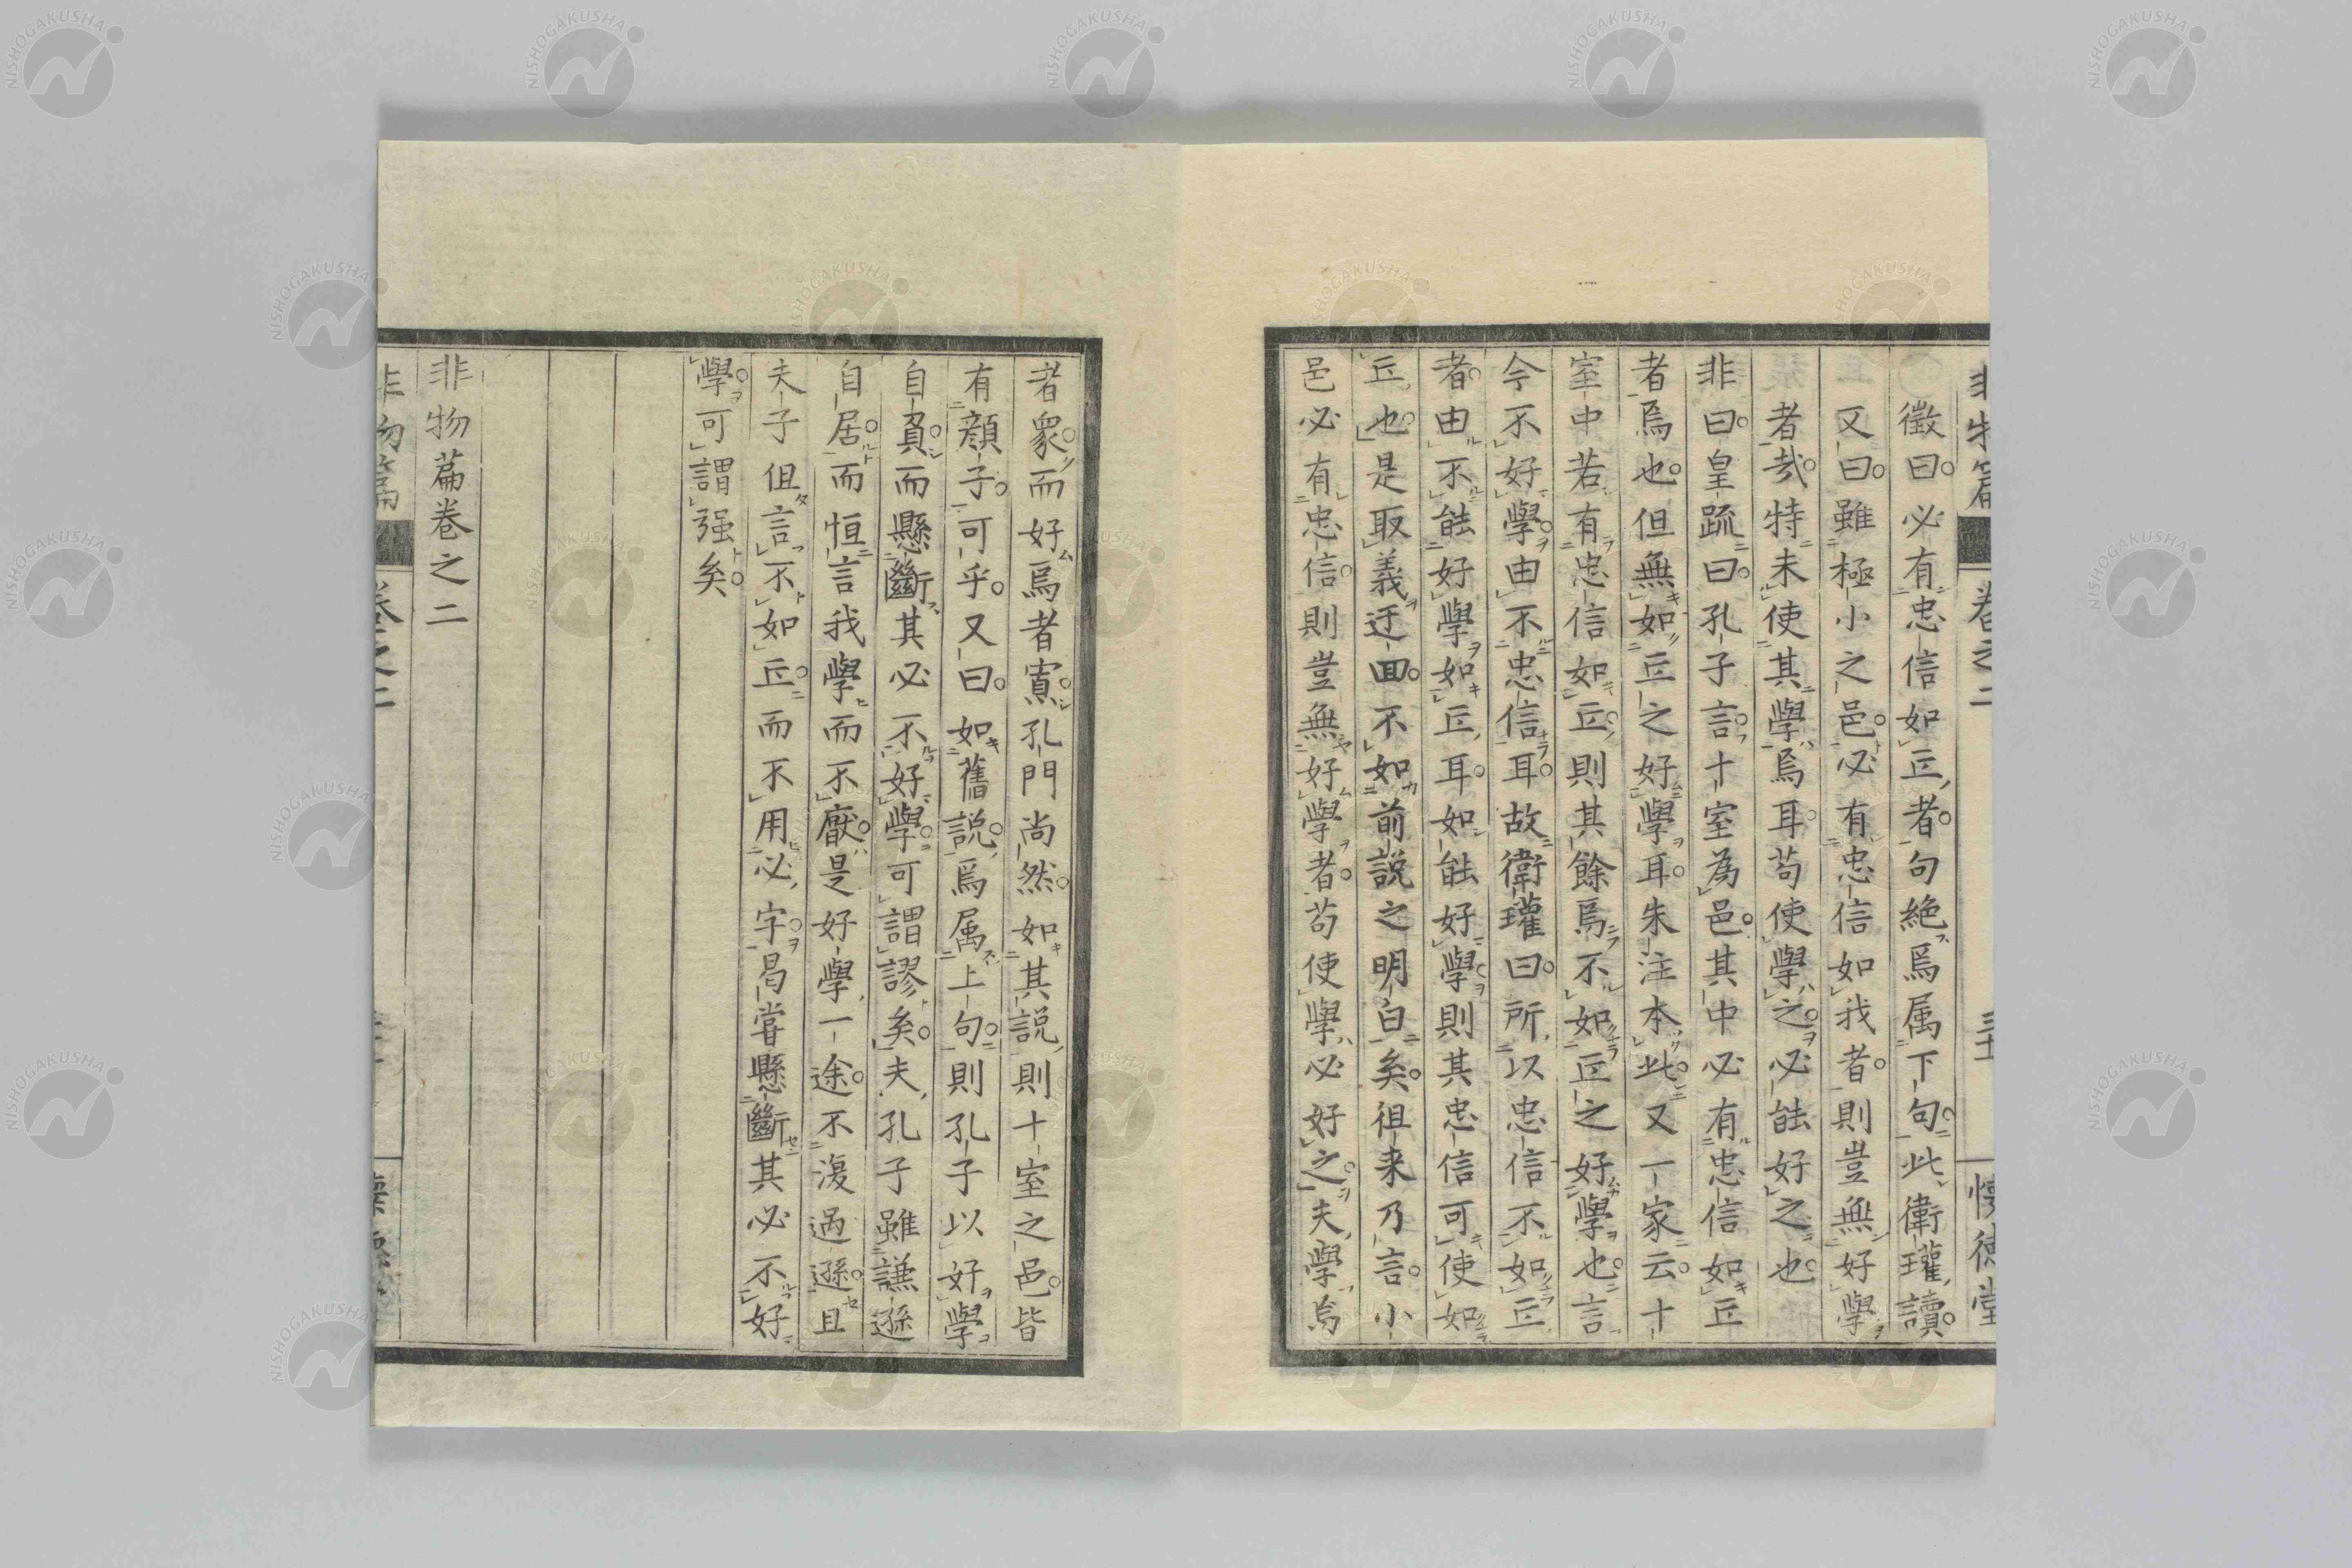 徵曰必有忠信如丘者句絶焉属下句此衛瓘讀
又曰雖極小之邑必有忠信如我者則豈無好學
者哉特未使其學焉耳苟使學之必能好之也
非曰皇疏曰孔子言十室為邑其中必有忠信如丘
者焉也但無如丘之好學耳朱注本此又一家云十
室中若有忠信如丘則其餘焉不如丘之好學也言
今不好學由不忠信耳故衛瓘曰所以忠信不如丘
者由不能好學如丘耳如能好學則其忠信可使如
丘也是取義迂回不如前説之明白矣徂来乃言小
邑必有忠信則豈無好學者苟使學必好之夫學焉
者衆而好焉者寡孔門尚然如其説則十室之邑皆
有顔子可乎又曰如舊説焉属上句則孔子以好學
自負而懸斷其必不好學可謂謬矣夫孔子雖謙遜
自居而恒言我學而不厭是好學一途不復過遜且
夫子但言不如丘而不用必字曷嘗懸斷其必不好
學可謂强矣
非物篇卷之二
非物篇
卷之二